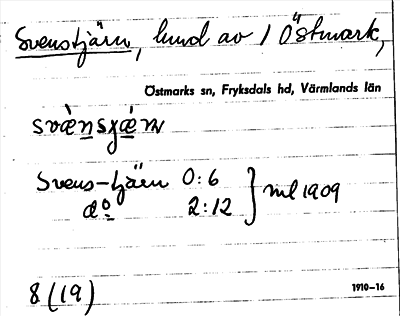 Svenstjärn, lund av 1 Östmark,
Östmarks sn, Fryksdals hd, Värmlands län
Svens-tjärn 0:6
dº 2:12 } ml 1909
8 (19)
1910-16